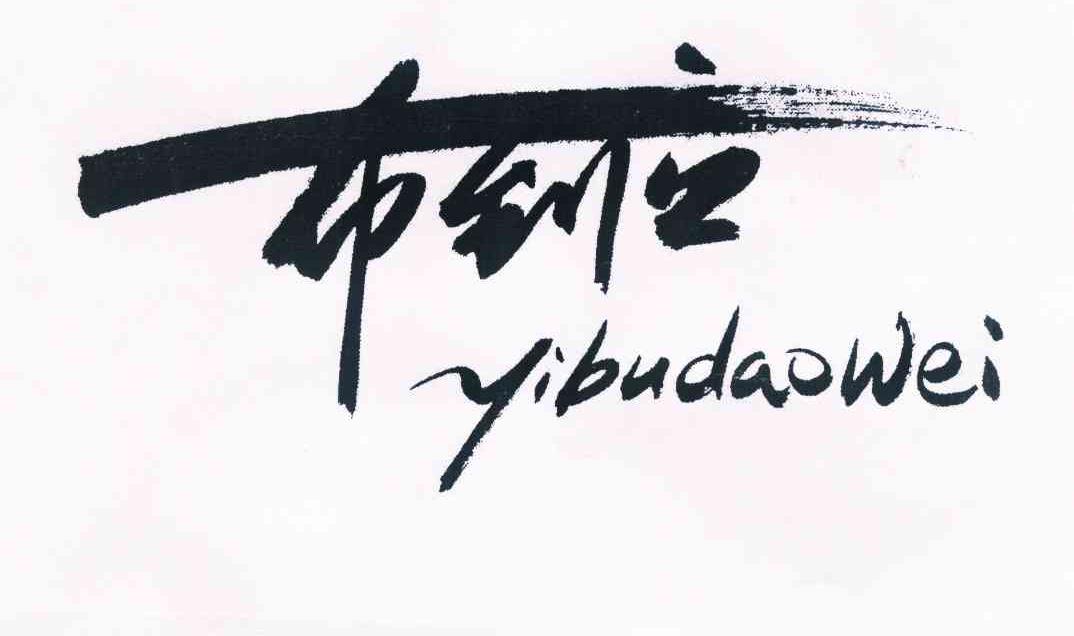 一布到位
yibudaowei